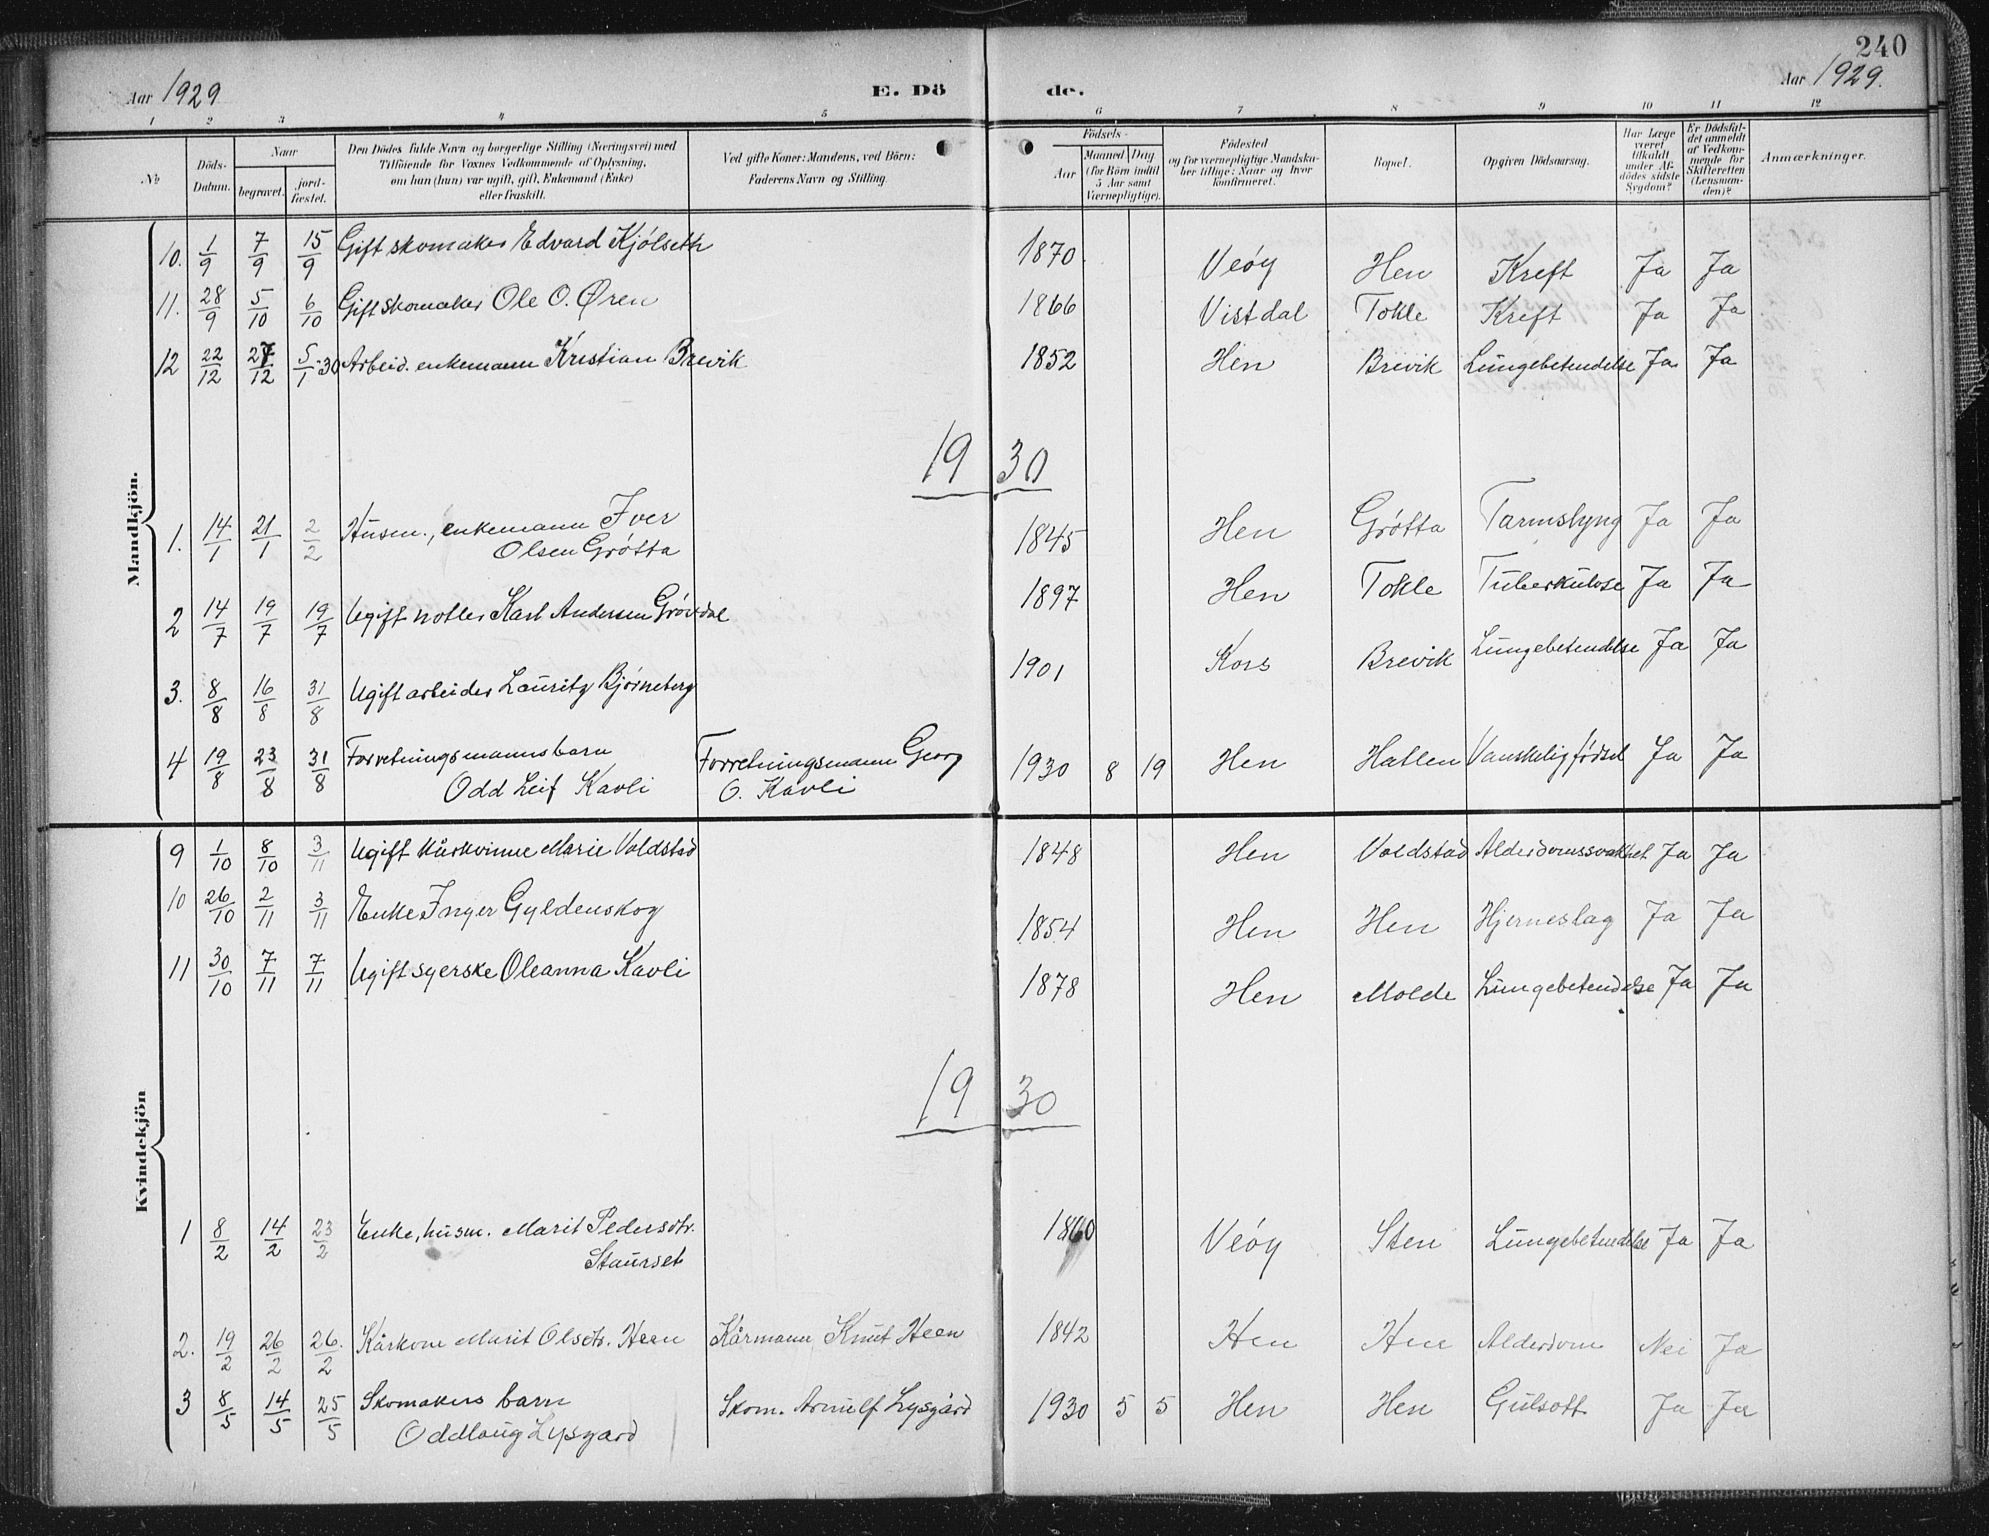 240
Aar 1929 E. Dö de. Aar 1929.
1 2 3 4 5 6 7 8 9 10 11 12
№
Döds-Datum.
Naar
begravet.
jord-fæstet.
Den Dödes fulde Navn og borgerlige Stilling (Næringsvei) med
Tilföiende for Voxnes Vedkommende af Oplysning,
om han (hun) var ugift, gift, Enkemand (Enke)
eller fraskilt.
Ved gifte Koner: Mandens, ved Börn:
Faderens Navn og Stilling.
Födsels-
Aar
Maaned Dag
(for Börn indtil
5 Aar samt
Værnepligtige).
Födested
og for værnepligtige Mandska-
ber tillige: Naar og hvor
konfirmeret.
Bopæl.
Opgiven Dödsaarsag.
Har Læge
været
tilkaldt
under Af-
dödes sidste
Sygdom?
Er Dödsfal-
det anmeldt
af Vedkom-
mende for
Skifteretten
(Lensman-
den)?
Anmærkninger.
Mandkjön.
10. 1/9 7/9 15/9 Gift skomaker Edvard Kjölseth 1870 Veöy Hen Kreft Ja Ja
11. 28/9 5/10 6/10 Gift skomaker Ole O. Øren 1866 Vistdal Tokle Kreft Ja Ja
12 22/12 27/12 5/1-30 Arbeid. enkemann Kristian Brevik 1852 Hen Brevik Lungebetendelse Ja Ja
1930
1. 14/1 21/1 2/2 Husm., enkemann Iver
Olsen Grötta 1845 Hen Grötta Tarmslyng Ja Ja
2 14/7 19/7 19/7 Ugift Karl Andersen Grövdal 1897 Hen Tokle Tuberkulose Ja Ja
3. 8/8 16/8 31/8 Ugift arbeider Lauritz Bjørneberg 1901 Kors Brevik Lungebetendelse Ja Ja
4 19/8 23/8 31/8 Forretningsmannsbarn Forretningsmann Georg
Odd Leif Kavli O. Kavli 1930 8 19 Hen Hatlen Vanskelig födsel Ja Ja
Kvindekjön
9 1/10 8/10 3/11 Ugift kårkvinne Marie Voldstad 1848 Hen Voldstad Alderdomssvakhet Ja Ja
10 26/10 2/11 3/11 Enke Inger Gyldenskog 1854 Hen Hen Hjerneslag Ja Ja
11 30/10 7/11 7/11 Ugift syerske Oleanna Kavli 1878 Hen Molde Lungebetendelse Ja Ja
1930
1 8/2 14/2 23/2 Enke, husm. Marit Pedersdtr.
Staurset 1860 Veöy Sten Lungebetendelse Ja Ja
2. 19/2 26/2 26/2 Kårkone Marit Olsdtr. Heen Kårmann Knut Heen 1842 Hen Hen Alderdom Nei Ja
3 8/5 14/5 25/5 Skomakers barn Skom. Arnulf Lysgård 1930 5 5 Hen Hen Gulsott Ja Ja
Oddlaug Lysgård